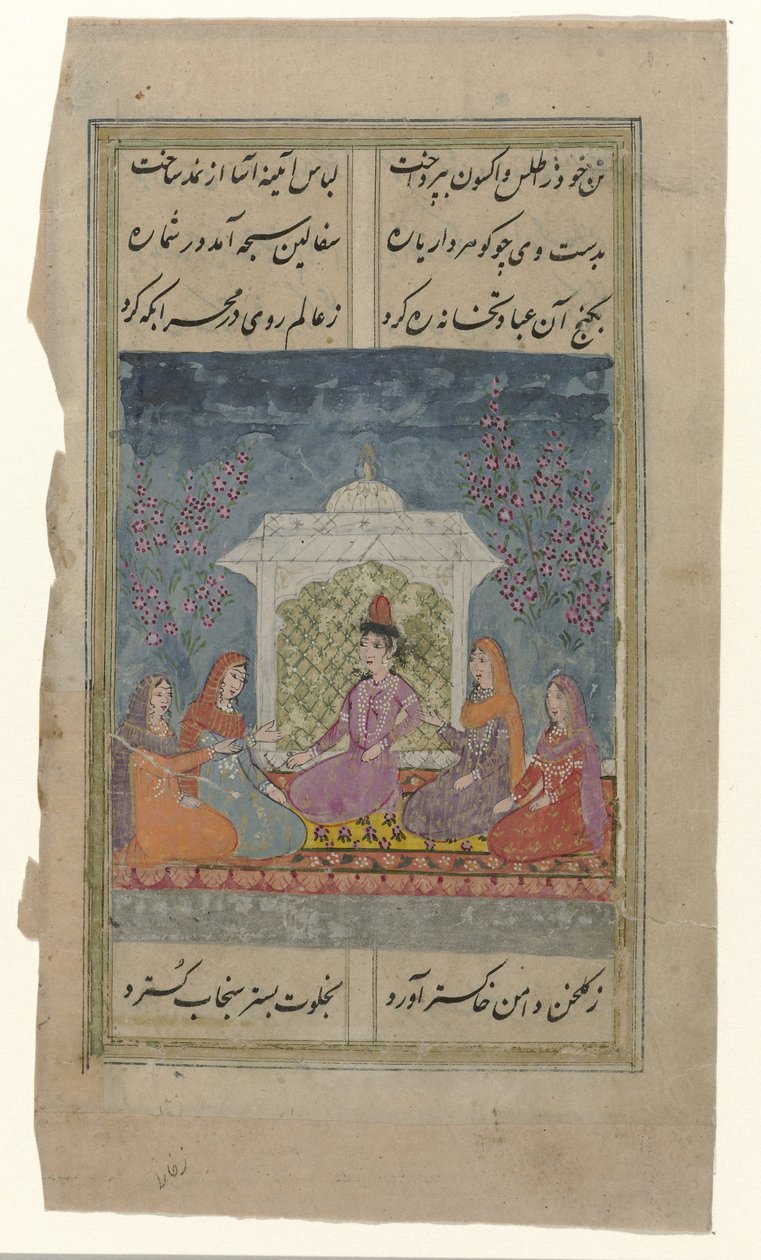 تن خود ز اطلس و اکسون بپرداخت لباس آیینه آسا از نمد ساخت
بدست وی چو کوهردار یاره سفالین سبحه آمد در شماره
بکنج آن عبادتخانه ره کرد ز عالم روی در محرابکه کرد
ز کلخن دامن خاکستر آورد بخلوت بستر سنجاب کسترد
زخارا